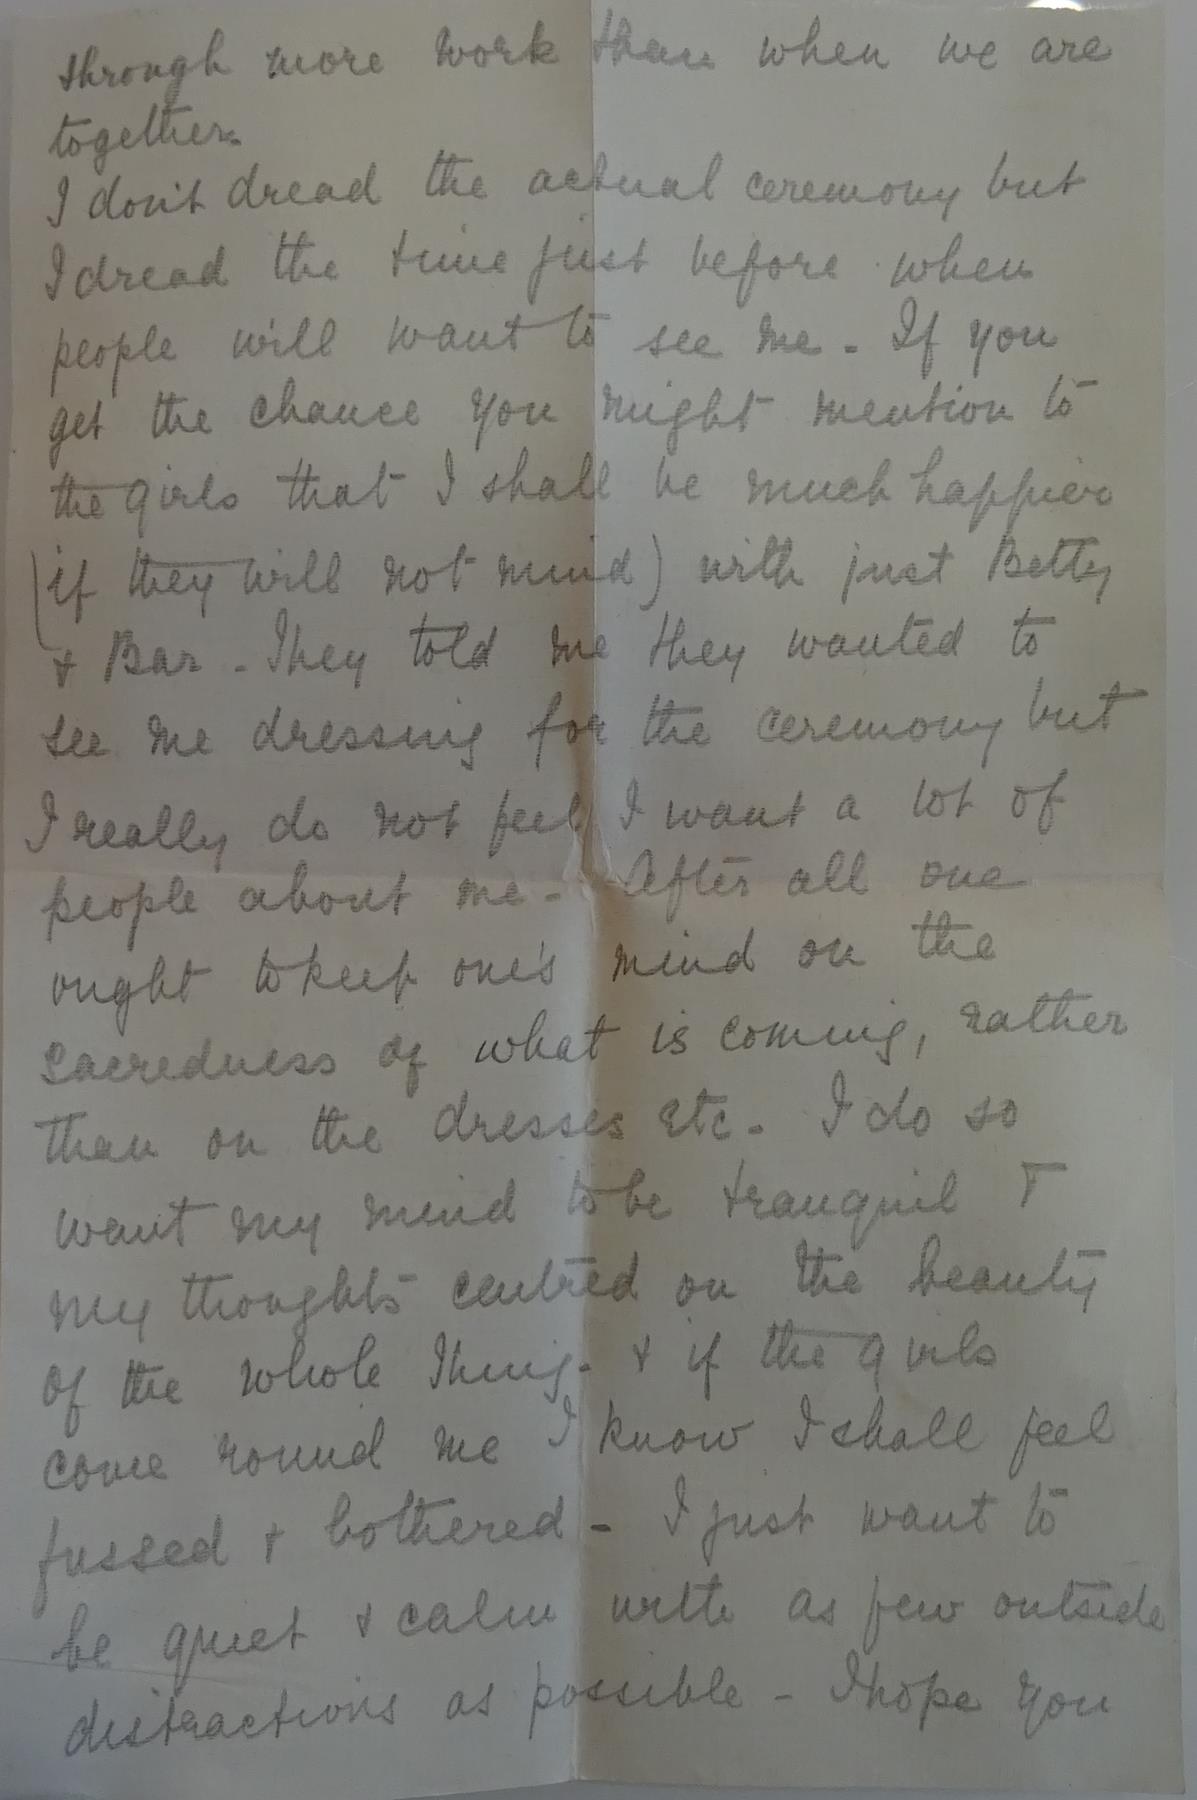 through more work than when we are
together.
I don't dread the actual ceremony but
I dread the time just before when
people will want to see me - If you
get the chance you might mention to
the girls that I shall be much happier
(if they will not mind) with just Betty
+ Bar - They told me they wanted to
see me dressing for the ceremony but
I really do not feel I want a lot of
people about me - After all one
ought to keep one's mind on the
sacredness of what is coming, rather
than on the dresses etc - I do so
want my mind to be tranquil +
my thoughts centred on the beauty
of the whole thing - + if the girls
come round me I know I shall feel
fussed + bothered - I just want to
be quiet + calm with as few outside
distractions as possible - I hope you